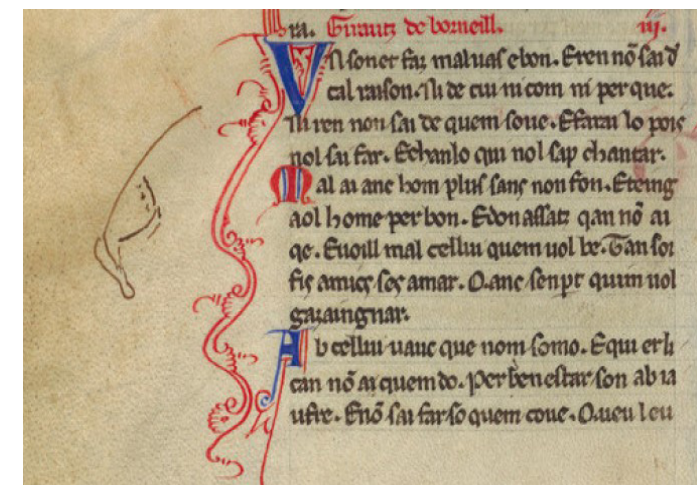 ra. Girautz de borneill. iij.
Un soner faz maluas ebon. Eren nō sai d
cal raison. Ni de cui ni com ni per que.
Ni ren non sai de quem soue. E farai lo pois
nol sai far. E chanlo qui nol sap chantar.
Mal ai anc hom plus sans non fon. E teing
aol home per bon. E don assatz qan nō ai
qe. E uoill mal celliu quem uol be. Tan soi
fis amics ses amar. Q anc sempr quim uol
gazaingnar.
Ab celliu uauc que nom somo. E qui er li
can nō ai quem do. Per ben estar son ab ia
ufre. E nō sai far so quem coue. Q ueu leu